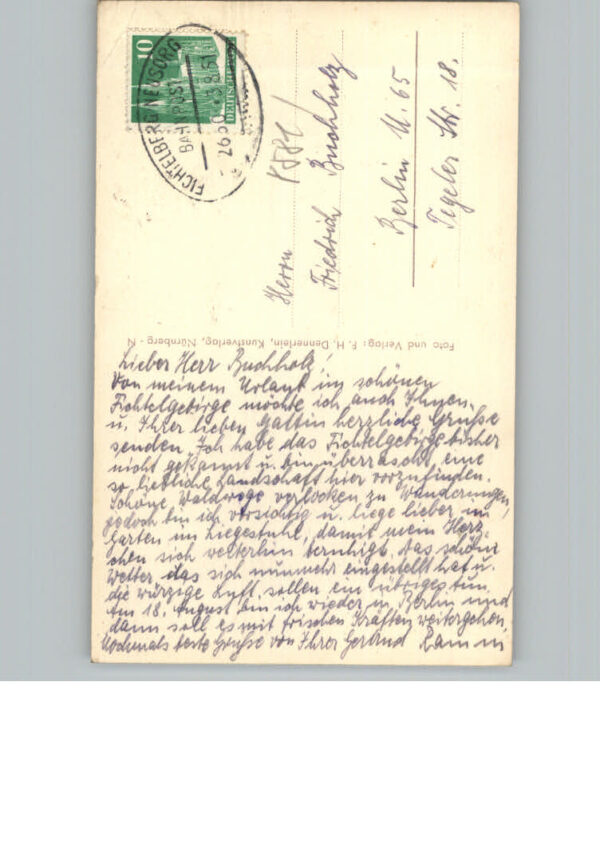 10
DEUTSCHE
FICHTELBERG-NEUSORG
BAHNPOST
8.51
Herrn
Friedrich Buchholz
Berlin N. 65
Tegeler Str. 18.
Foto und Verlag: F. H. Dennerlein, Kunstverlag, Nürnberg - N
Lieber Herr Buchholz!
Von meinem Urlaub im schönen
Fichtelgebirge möchte ich auch Ihnen
u. Ihrer lieben Gattin herzliche Grüße
senden. Ich habe das Fichtelgebirge bisher
nicht gekannt u. bin überrascht, eine
so liebliche Landschaft hier vorzufinden.
Schöne Waldwege verlocken zu Wanderungen,
jedoch bin ich vorsichtig u. liege lieber im
Garten im Liegestuhl, damit mein Herz-
chen sich weiterhin beruhigt. Das schöne
Wetter das sich nunmehr eingestellt hat u.
die würzige Luft sollen ein übriges tun.
Am 18. August bin ich wieder in Berlin und
dann soll es mit frischen Kräften weitergehen.
Nochmals beste Grüße von Ihrer Gertrud Ramm